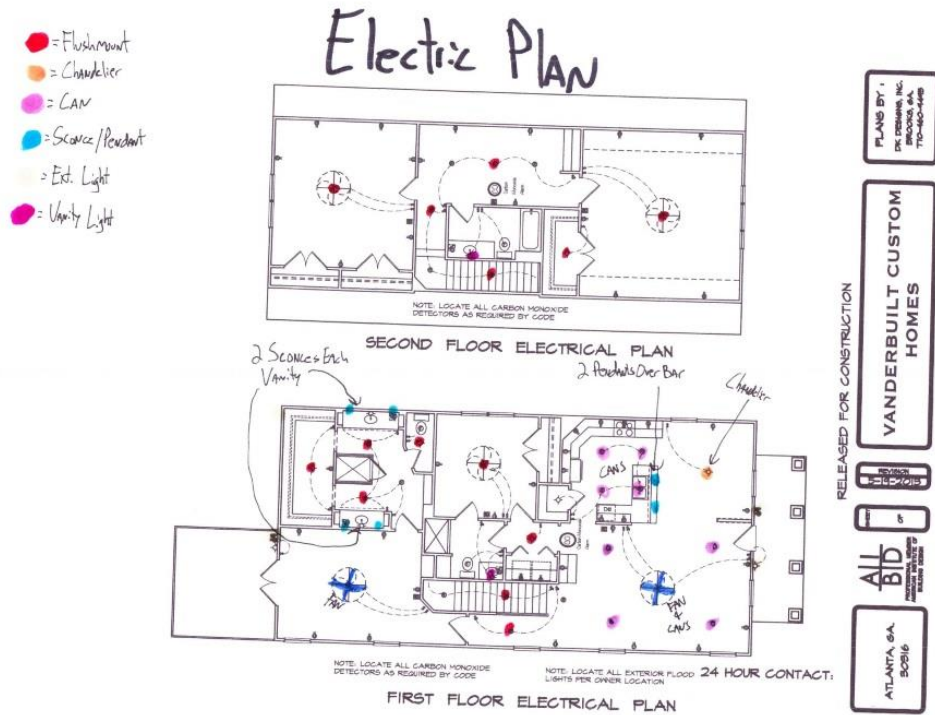 Electric PLAN
= Flushmount
= Chandelier
= CAN
= Sconce/Pendant
= Ext. Light
= Vanity Light
NOTE: LOCATE ALL CARBON MONOXIDE
DETECTORS AS REQUIRED BY CODE
SECOND FLOOR ELECTRICAL PLAN
2 Sconces Each
Vanity
2 Pendants Over BAR
Chandelier
CANS
FAN
FAN
+
CANS
NOTE: LOCATE ALL CARBON MONOXIDE
DETECTORS AS REQUIRED BY CODE
NOTE: LOCATE ALL EXTERIOR FLOOD
LIGHTS PER OWNER LOCATION
24 HOUR CONTACT:
FIRST FLOOR ELECTRICAL PLAN
PLANS BY :
DK DESIGNS, INC.
BROOKS, GA.
770-460-4415
RELEASED FOR CONSTRUCTION
VANDERBUILT CUSTOM
HOMES
REVISION
5-19-2015
OF
AIBD
PROFESSIONAL MEMBER
AMERICAN INSTITUTE OF
BUILDING DESIGN
ATLANTA, GA.
30316